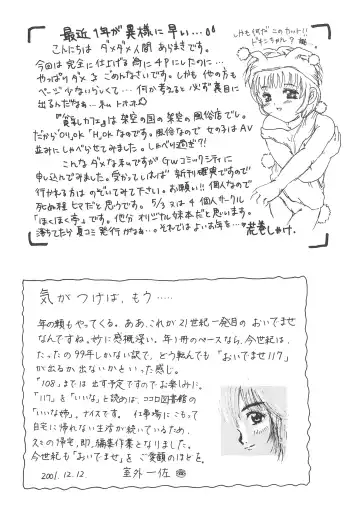 最近1年が異様に早い…
しかも何だこのカット!!
こんにちは ダメダメ人間 あらまきです。
今回は完全に仕上げる前に4Pにしたのに…
やっぱりダメ ごめんなさいです。しかも他の方も
ページ少ないらしくて… 何か考えると必ず裏目に
出るんだなぁ…私 トホホ
『貧乳カフェ』は架空の国の架空の風俗店でし。
だから OK、H OKなのです。風俗なので女のコはAV
並みにしゃべらせてみました。しゃべり過ぎ?!
こんなダメな私ですがGWコミックシティに
申し込んでみました。受かってしまえば新刊確実ですので
行かれる方はのぞいてみて下さい。お願い!!個人なので
死ぬ程ヒマだと思うです。5/3又は4 個人サークル
「ほくほく亭」です。他分オリヅカル妹本だと思います。
落ちてたら夏コミ発行かなぁ…。それではよいお年を…
荒巻しゃけ.
気がつけば、もう……
年の瀬もやってくる。ああ、これが21世紀一発目のおいでませ
なんですね。妙に感慨深い。年1冊のペースなら、今世紀は、
たったの99冊しかない訳で、どう転んでも「おいでませ117」
が出るか出ないかといった感じ。
「108」までは出す予定ですのでお楽しみに。
「117」を「いいな」と読めば、ココロ図書館の
「いいな姉」。ナイスです。仕事場にこもって
自宅に帰れない生活が続いているため、
久々の帰宅、即、編集作業となりました。
今世紀も「おいでませ」をご愛顧のほどを。
2001.12.12.
室外一佐